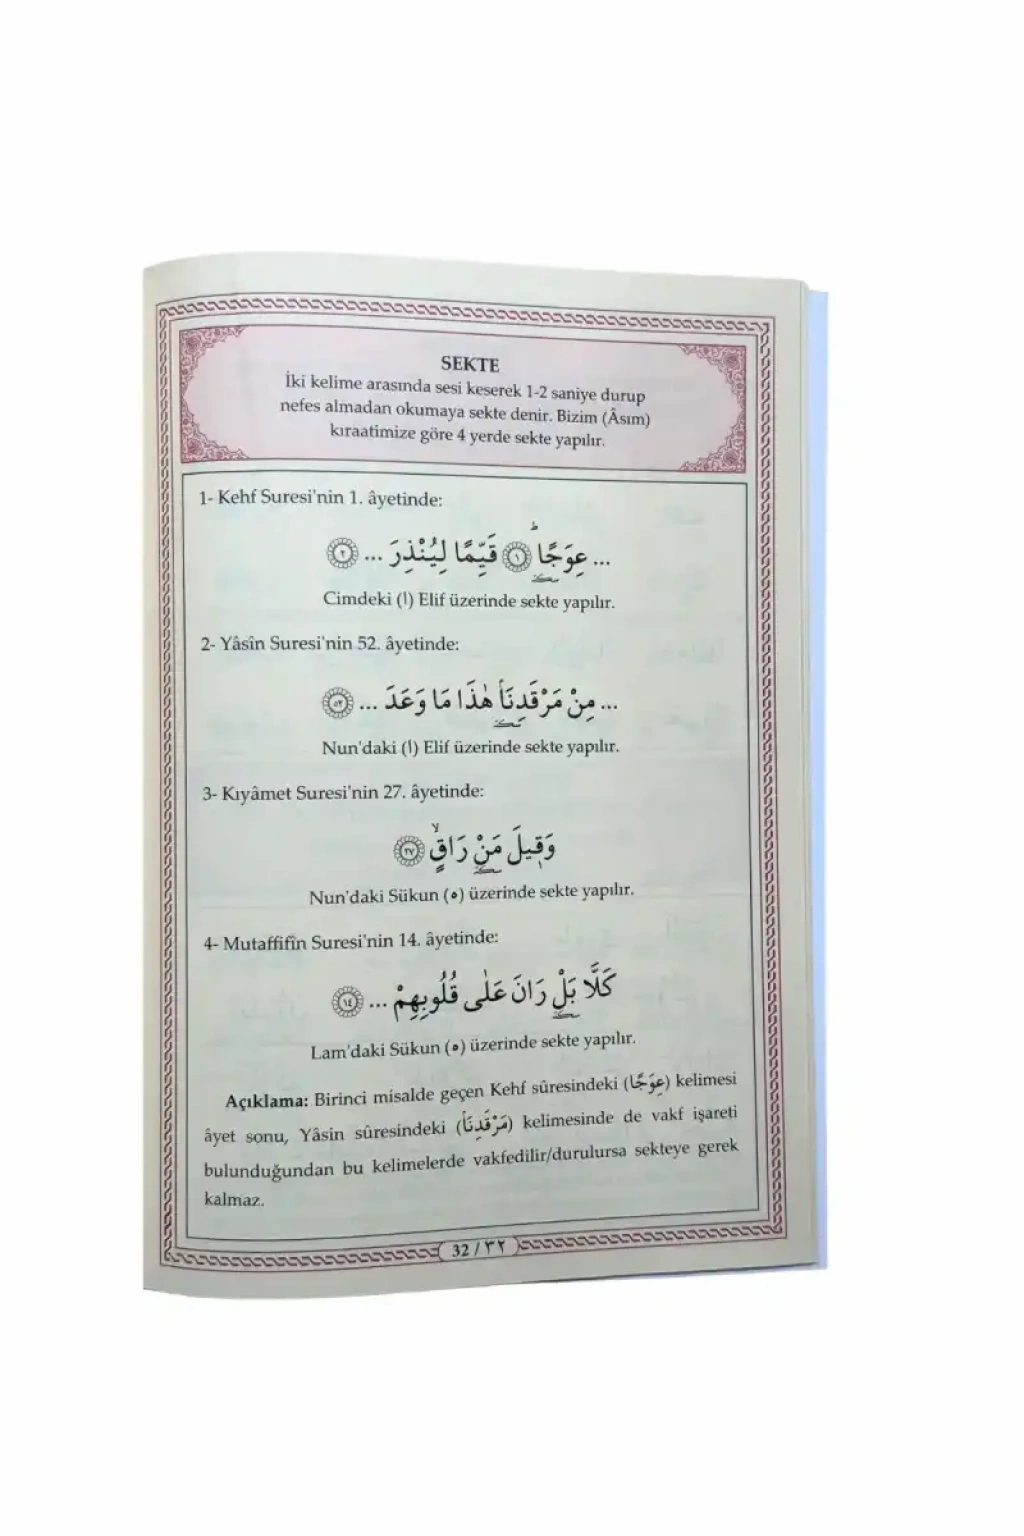 SEKTE
İki kelime arasında sesi keserek 1-2 saniye durup
nefes almadan okumaya sekte denir. Bizim (Âsım)
kıraatimize göre 4 yerde sekte yapılır.
1- Kehf Suresi'nin 1. âyetinde:
... عِوَجًاۜ ﴿١﴾ قَيِّمًا لِيُنْذِرَ ... ﴿٢﴾
Cimdeki (ا) Elif üzerinde sekte yapılır.
2- Yâsîn Suresi'nin 52. âyetinde:
... مِنْ مَرْقَدِنَاۜ هٰذَا مَا وَعَدَ ... ﴿٥٢﴾
Nun'daki (ا) Elif üzerinde sekte yapılır.
3- Kıyâmet Suresi'nin 27. âyetinde:
وَقِيلَ مَنْۜ رَاقٍۙ ﴿٢٧﴾
Nun'daki Sükun (ه) üzerinde sekte yapılır.
4- Mutaffifîn Suresi'nin 14. âyetinde:
كَلَّا بَلْۜ رَانَ عَلٰى قُلُوبِهِمْ ... ﴿١٤﴾
Lam'daki Sükun (ه) üzerinde sekte yapılır.
Açıklama: Birinci misalde geçen Kehf sûresindeki (عِوَجًا) kelimesi
âyet sonu, Yâsîn sûresindeki (مَرْقَدِنَا) kelimesinde de vakf işareti
bulunduğundan bu kelimelerde vakfedilir/durulursa sekteye gerek
kalmaz.
32 / ٣٢